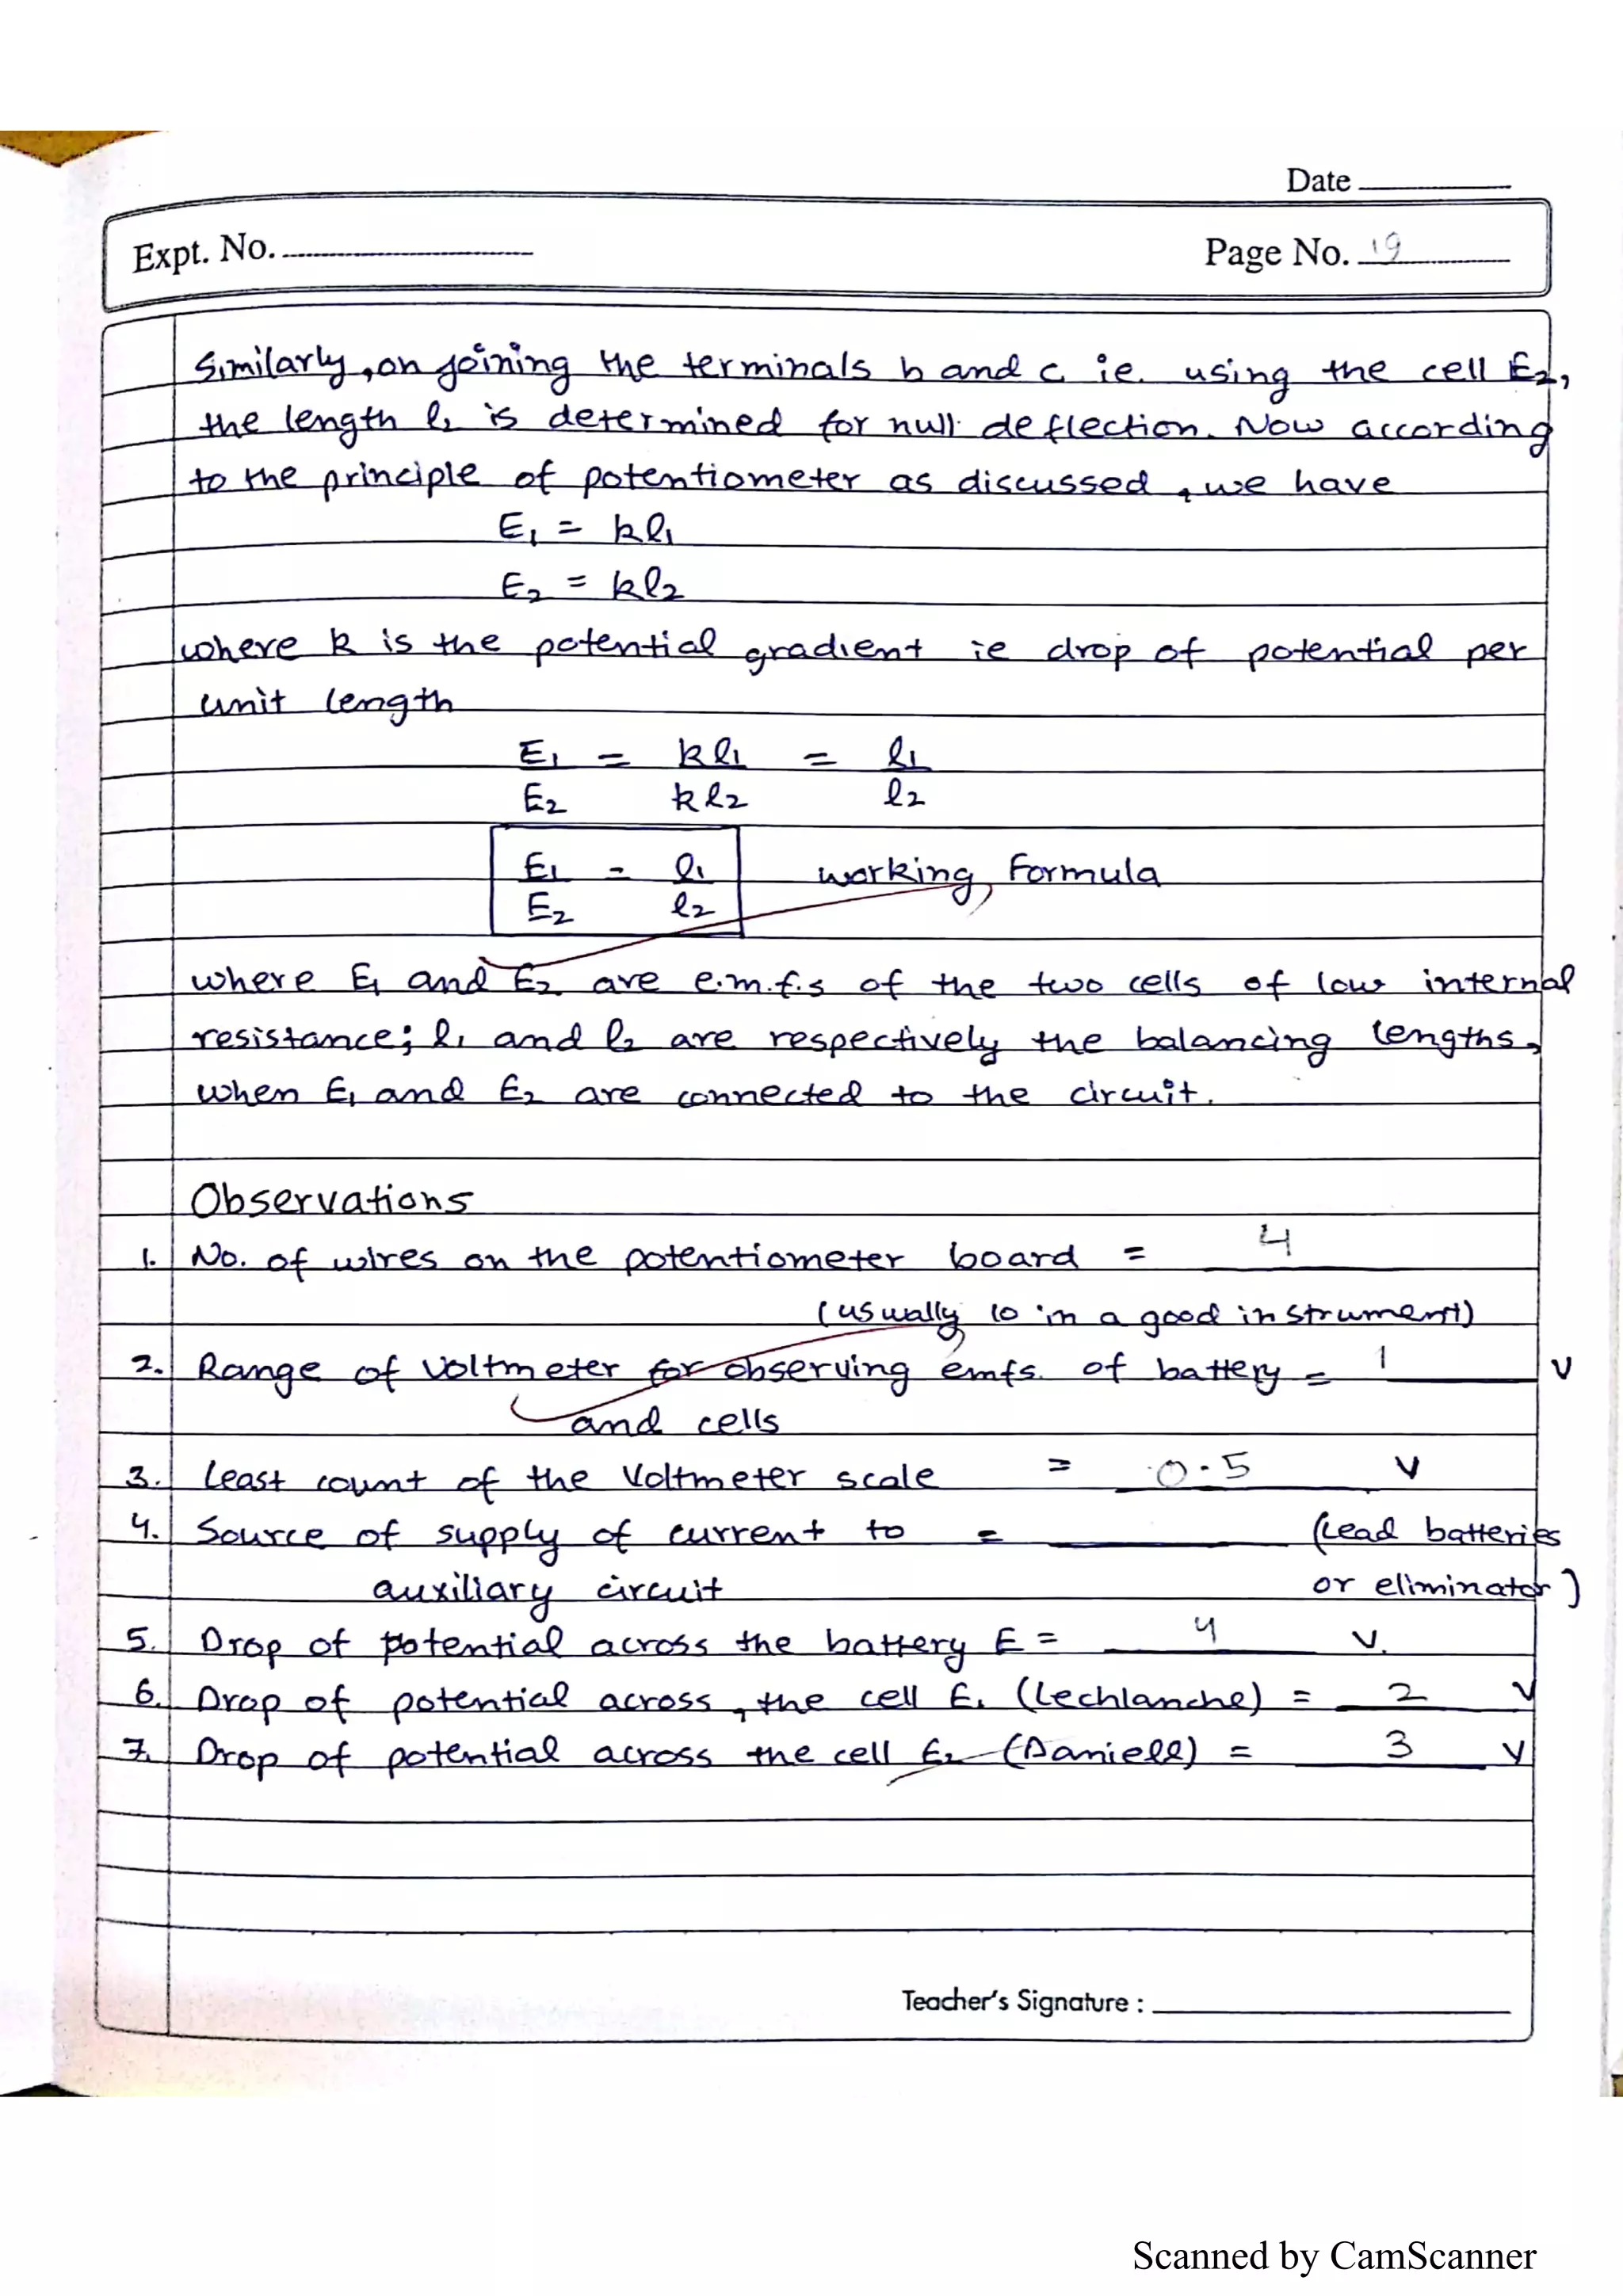 Date
Expt. No.
Page No. 19
Similarly, on joining the terminals b and c ie. using the cell E2,
the length l2 is determined for null deflection. Now according
to the principle of potentiometer as discussed, we have
E1 = kl1
E2 = kl2
where k is the potential gradient ie drop of potential per
unit length
E1 = kl1 = l1
E2 kl2 l2
E1 = l1 working Formula
E2 l2
where E1 and E2 are e.m.f.s of the two cells of low internal
resistance; l1 and l2 are respectively the balancing lengths,
when E1 and E2 are connected to the circuit.
Observations
1. No. of wires on the potentiometer board = 4
(usually 10 in a good instrument)
2. Range of voltmeter for observing emfs. of battery = 1 V
and cells
3. Least count of the Voltmeter scale = 0.5 V
4. Source of supply of current to = (Lead batteries
auxiliary circuit or eliminator)
5. Drop of potential across the battery E = 4 V.
6. Drop of potential across, the cell E1 (Lechlanche) = 2 V
7. Drop of potential across the cell E2 (Daniell) = 3 V
Teacher's Signature :
Scanned by CamScanner